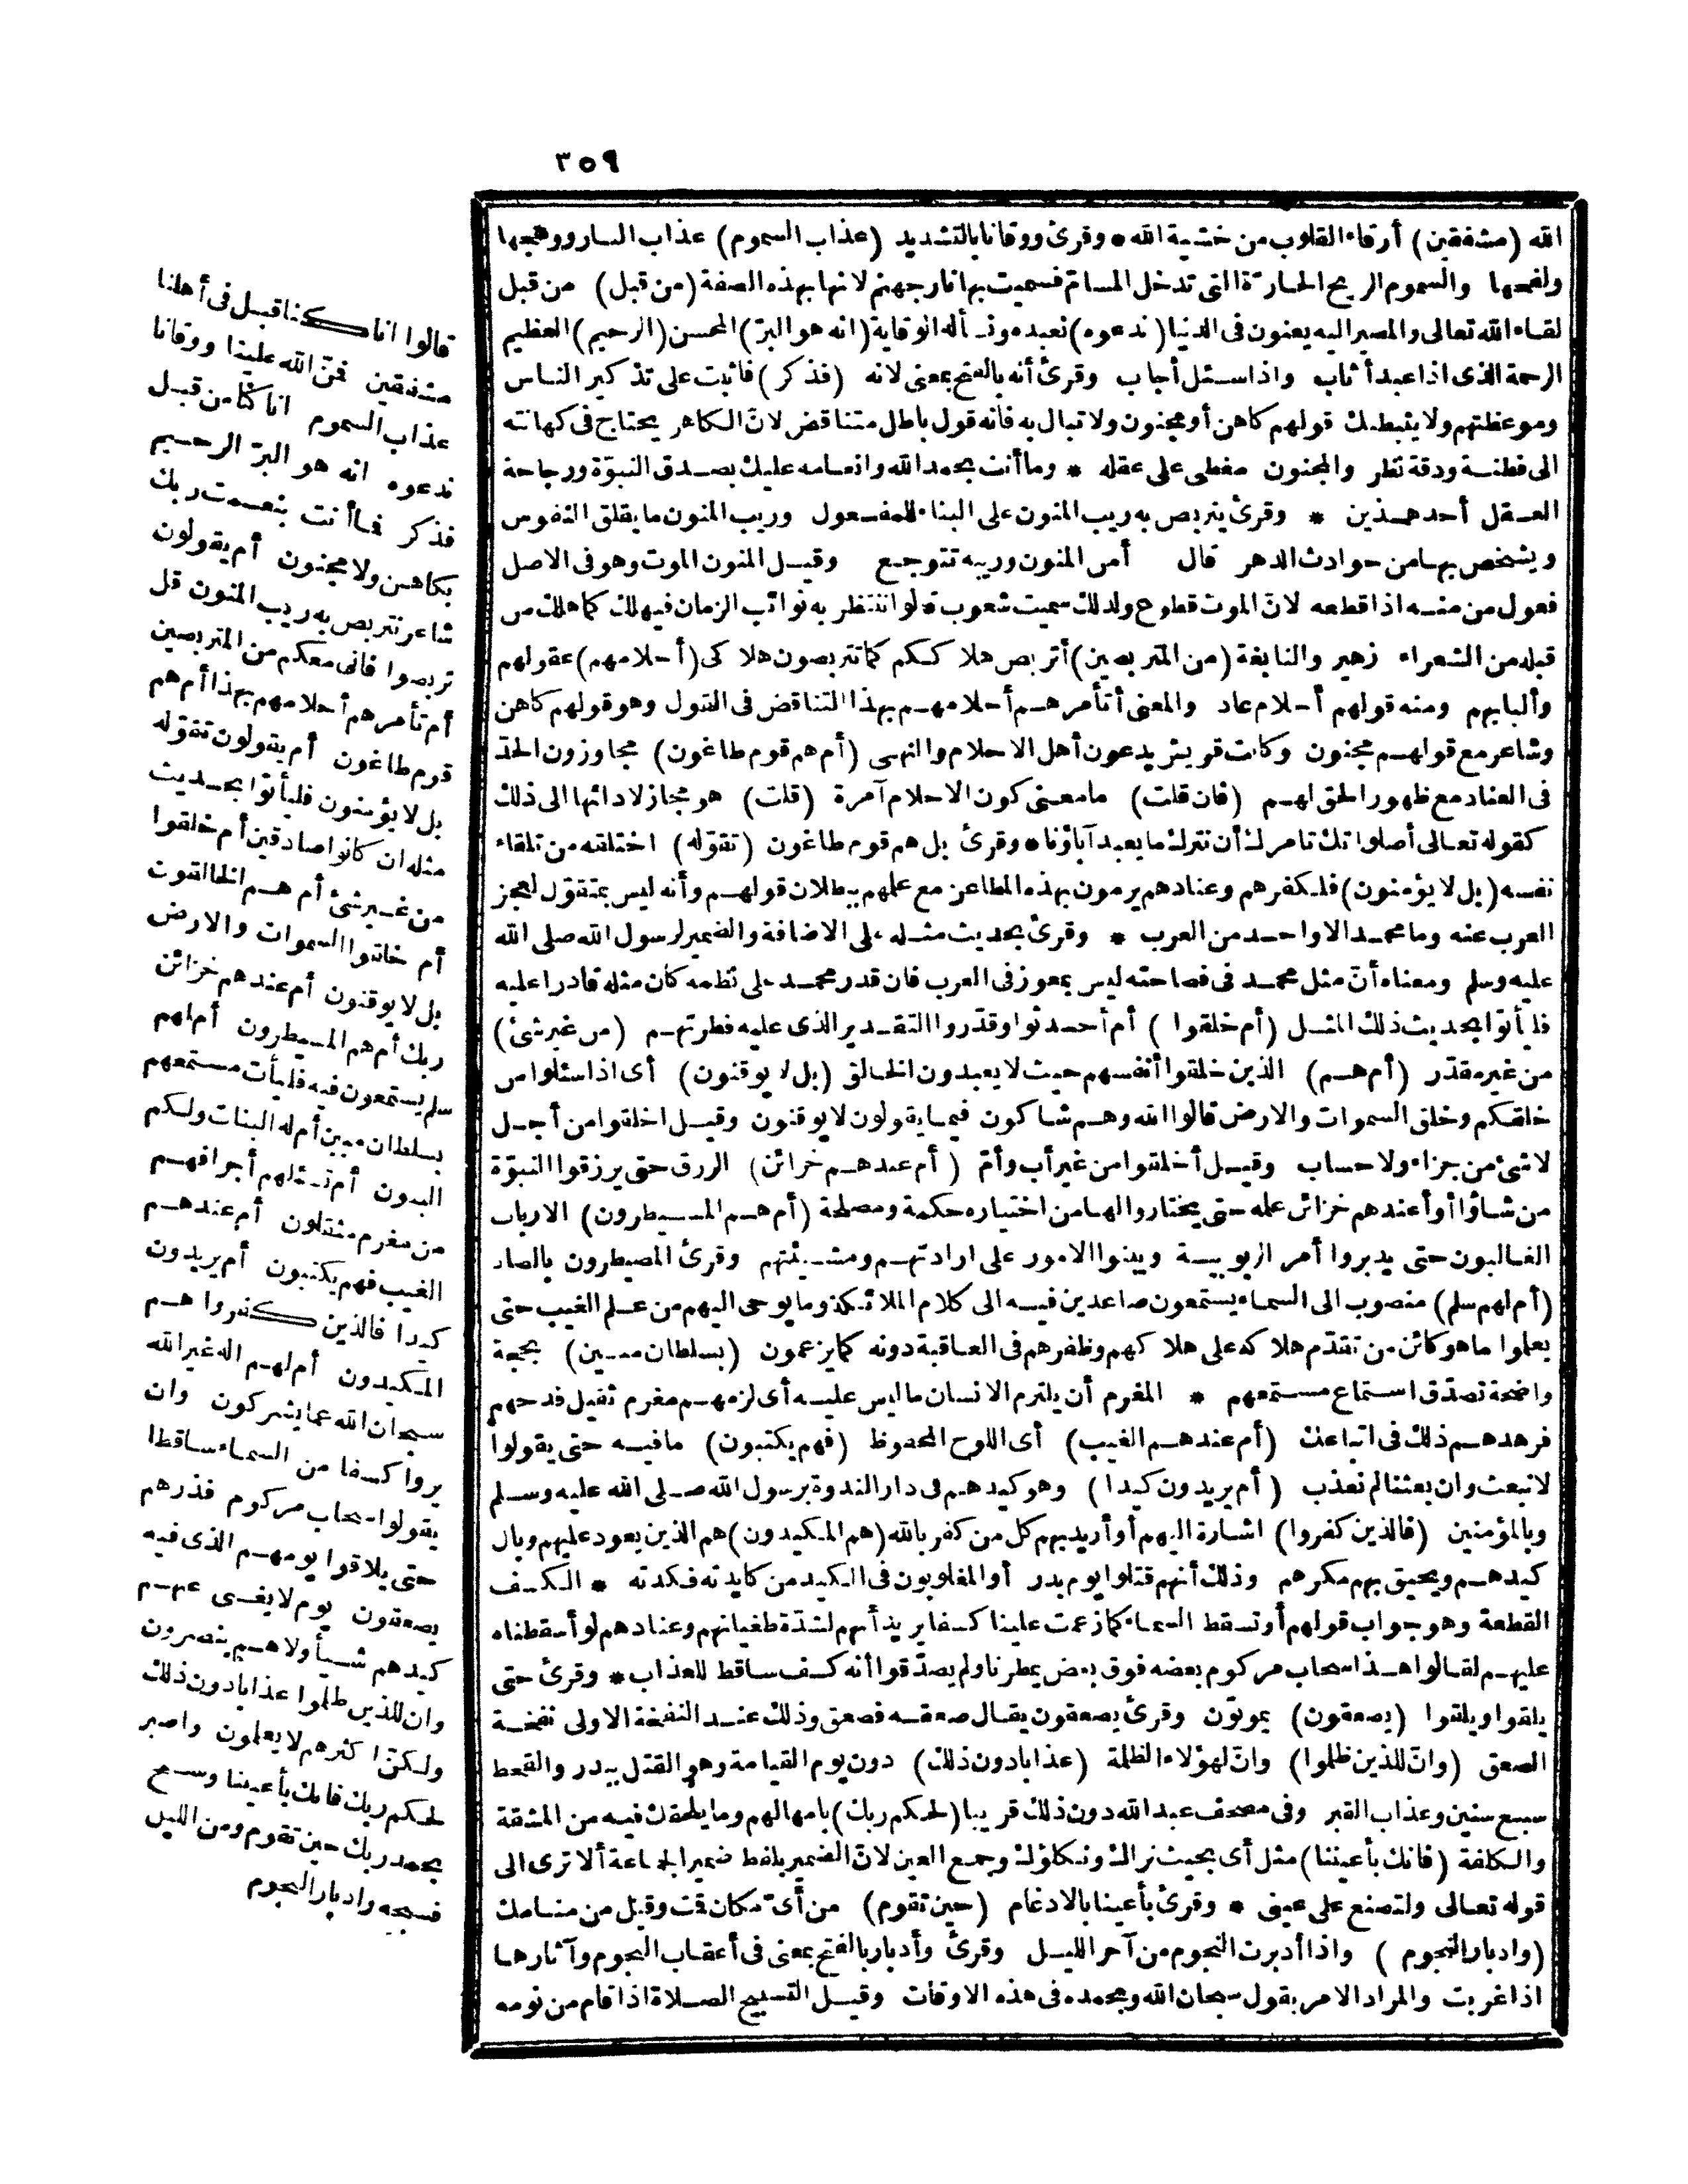 ٣٥٩
الله (مشفقين) أرقاء القلوب من خشية الله * وقرئ ووقانا بالتشديد (عذاب السموم) عذاب النار ووهجها
ولفحها والسموم الريح الحارّة التى تدخل المسامّ فسميت بها نار جهنم لانها بهذه الصفة (من قبل) من قبل
لقاء الله تعالى والمصير اليه يعنون فى الدنيا (ندعوه) نعبده ونسأله الوقاية (انه هو البرّ) المحسن (الرحيم) العظيم
الرحمة الذى اذا عبد أثاب واذا سئل أجاب وقرئ أنه بالفتح بمعنى لانه (فذكر) فاثبت على تذكير الناس
وموعظتهم ولا يثبطنك قولهم كاهن أو مجنون ولا تبال به فانه قول باطل متناقض لانّ الكاهن يحتاج فى كهانته
الى فطنة ودقة نظر والمجنون مغطى على عقله * وما أنت بحمد الله وانعامه عليك بصدق النبوّة ورجاحة
العقل أحد هذين * وقرئ يتربص به ريب المنون على البناء للمفعول وريب المنون ما يقلق النفوس
ويشخص بها من حوادث الدهر قال أمن المنون وريبه تتوجع وقيل المنون الموت وهو فى الاصل
فعول من منه اذا قطعه لانّ الموت قطوع ولذلك سميت شعوب قالوا ننتظر به نوائب الزمان فيهلك كما هلك من
قبله من الشعراء زهير والنابغة (من المتربصين) أتربص هلاككم كما تتربصون هلاكى (أحلامهم) عقولهم
وألبابهم ومنه قولهم أحلام عاد والمعنى أتأمرهم أحلامهم بهذا التناقض فى القول وهو قولهم كاهن
وشاعر مع قولهم مجنون وكانت قريش يدعون أهل الاحلام والنهى (أم هم قوم طاغون) مجاوزون الحدّ
فى العناد مع ظهور الحق لهم (فان قلت) ما معنى كون الاحلام آمرة (قلت) هو مجاز لادائها الى ذلك
كقوله تعالى أصلواتك تامرك أن نترك ما يعبد آباؤنا * وقرئ بل هم قوم طاغون (تقوّله) اختلقه من تلقاء
نفسه (بل لا يؤمنون) فلكفرهم وعنادهم يرمون بهذه المطاعن مع علمهم ببطلان قولهم وأنه ليس بمتقوّل لعجز
العرب عنه وما محمد الا واحد من العرب * وقرئ بحديث مثله على الاضافة والضمير لرسول الله صلى الله
عليه وسلم ومعناه أنّ مثل محمد فى فصاحته ليس بمعوز فى العرب فان قدر محمد على نظمه كان مثله قادرا عليه
فليأتوا بحديث ذلك المثل (أم خلقوا ) أم أحدثوا وقدّروا التقدير الذى عليه فطرتهم (من غير شئ)
من غير مقدّر (أم هم) الذين خلقوا أنفسهم حيث لا يعبدون الخالق (بل لا يوقنون) أى اذا سئلوا من
خلقكم وخلق السموات والارض قالوا الله وهم شاكون فيما يقولون لا يوقنون وقيل اخلقوا من أجل
لا شئ من جزاء ولا حساب وقيل أخلقوا من غير أب وأمّ (أم عندهم خزائن) الرزق حتى يرزقوا النبوّة
من شاؤا أو أعندهم خزائن علمه حتى يختاروا لها من اختياره حكمة ومصلحة (أم هم المسيطرون) الارباب
الغالبون حتى يدبروا أمر الربوبية ويبنوا الامور على ارادتهم ومشيئتهم وقرئ المصيطرون بالصاد
(أم لهم سلم) منصوب الى السماء يستمعون صاعدين فيه الى كلام الملائكة وما يوحى اليهم من علم الغيب حتى
يعلموا ما هو كائن من تقدّم هلاكه على هلاكهم وظفرهم فى العاقبة دونه كما يزعمون (بسلطان مبين) بحجة
واضحة تصدّق استماع مستمعهم * المغرم أن يلتزم الانسان ما ليس عليه أى لزمهم مغرم ثقيل فدحهم
فزهدهم ذلك فى اتباعك (أم عندهم الغيب) أى اللوح المحفوظ (فهم يكتبون) ما فيه حتى يقولوا
لا نبعث وان بعثنا لم نعذب (أم يريدون كيدا ) وهو كيدهم فى دار الندوة برسول الله صلى الله عليه وسلم
وبالمؤمنين (فالذين كفروا) اشارة اليهم أو أريد بهم كل من كفر بالله (هم المكيدون) هم الذين يعود عليهم وبال
كيدهم ويحيق بهم مكرهم وذلك أنهم قتلوا يوم بدر أو المغلوبون فى الكيد من كايدته فكدته * الكسف
القطعة وهو جواب قولهم أو تسقط السماء كما زعمت علينا كسفا يريد أنهم لشدّة طغيانهم وعنادهم لو أسقطناه
عليهم لقالوا هذا سحاب مركوم بعضه فوق بعض يمطرنا ولم يصدّقوا أنه كسف ساقط للعذاب * وقرئ حتى
يلقوا ويلقوا (يصعقون) يموتون وقرئ يصعقون يقال صعقه فصعق وذلك عند النفخة الاولى نفخة
الصعق (وانّ للذين ظلموا) وانّ لهؤلاء الظلمة (عذابا دون ذلك) دون يوم القيامة وهو القتل ببدر والقحط
سبع سنين وعذاب القبر وفى مصحف عبد الله دون ذلك قريبا (لحكم ربك) بامهالهم وما يلحقك فيه من المشقة
والكلفة (فانك بأعيننا) مثل أى بحيث نراك ونكلؤك وجمع العين لانّ الضمير بلفظ ضمير الجماعة ألا ترى الى
قوله تعالى ولتصنع على عينى * وقرئ بأعينا بالادغام (حين تقوم) من أىّ مكان قمت وقيل من منامك
(وادبار النجوم ) واذا أدبرت النجوم من آخر الليل وقرئ وأدبار بالفتح بمعنى فى أعقاب النجوم وآثارها
اذا غربت والمراد الامر بقول سبحان الله وبحمده فى هذه الاوقات وقيل التسبيح الصلاة اذا قام من نومه
قالوا انا كنا قبل فى أهلنا
مشفقين فمنّ الله علينا ووقانا
عذاب السموم انا كنّا من قبل
ندعوه انه هو البرّ الرحيم
فذكر فما أنت بنعمت ربك
بكاهن ولا مجنون أم يقولون
شاعر نتربص به ريب المنون قل
تربصوا فانى معكم من المتربصين
أم تأمرهم أحلامهم بهذا أم هم
قوم طاغون أم يقولون تقوّله
بل لا يؤمنون فليأتوا بحديث
مثله ان كانوا صادقين أم خلقوا
من غير شئ أم هم الخالقون
أم خلقوا السموات والارض
بل لا يوقنون أم عندهم خزائن
ربك أم هم المسيطرون أم لهم
سلم يستمعون فيه فليأت مستمعهم
بسلطان مبين أم له البنات ولكم
البنون أم تسئلهم أجرا فهم
من مغرم مثقلون أم عندهم
الغيب فهم يكتبون أم يريدون
كيدا فالذين كفروا هم
المكيدون أم لهم اله غير الله
سبحان الله عما يشركون وان
يروا كسفا من السماء ساقطا
يقولوا سحاب مركوم فذرهم
حتى يلاقوا يومهم الذى فيه
يصعقون يوم لا يغنى عنهم
كيدهم شيأ ولا هم ينصرون
وان للذين ظلموا عذابا دون ذلك
ولكنّ أكثرهم لا يعلمون واصبر
لحكم ربك فانك بأعيننا وسبح
بحمد ربك حين تقوم ومن الليل
فسبحه وادبار النجوم